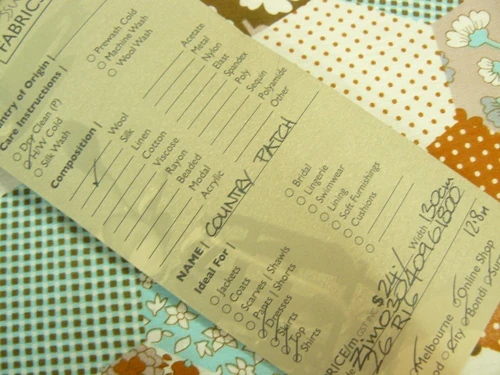 FABRIC
Country of Origin |
Care Instructions |
Dry Clean (P)
H/W Cold
Silk Wash
Prewash Cold
Machine Wash
Wool Wash
Composition |
Wool
Silk
Linen
Cotton
Viscose
Rayon
Beaded
Modal
Acrylic
Acetate
Metal
Nylon
Elast
Spandex
Poly
Sequin
Polyamide
Other
NAME | COUNTRY PATCH
Ideal For |
Jackets
Coats
Scarves | Shawls
Pants | Shorts
Dresses
Skirts
Top
Shirts
Bridal
Lingerie
Swimwear
Lining
Soft Furnishings
Cushions
PRICE/m
$24.-
Width 130cm
128m
Melbourne
Online Shop
City
Bondi